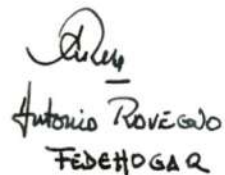 Antonio Rovegno
FEDEHOGAR